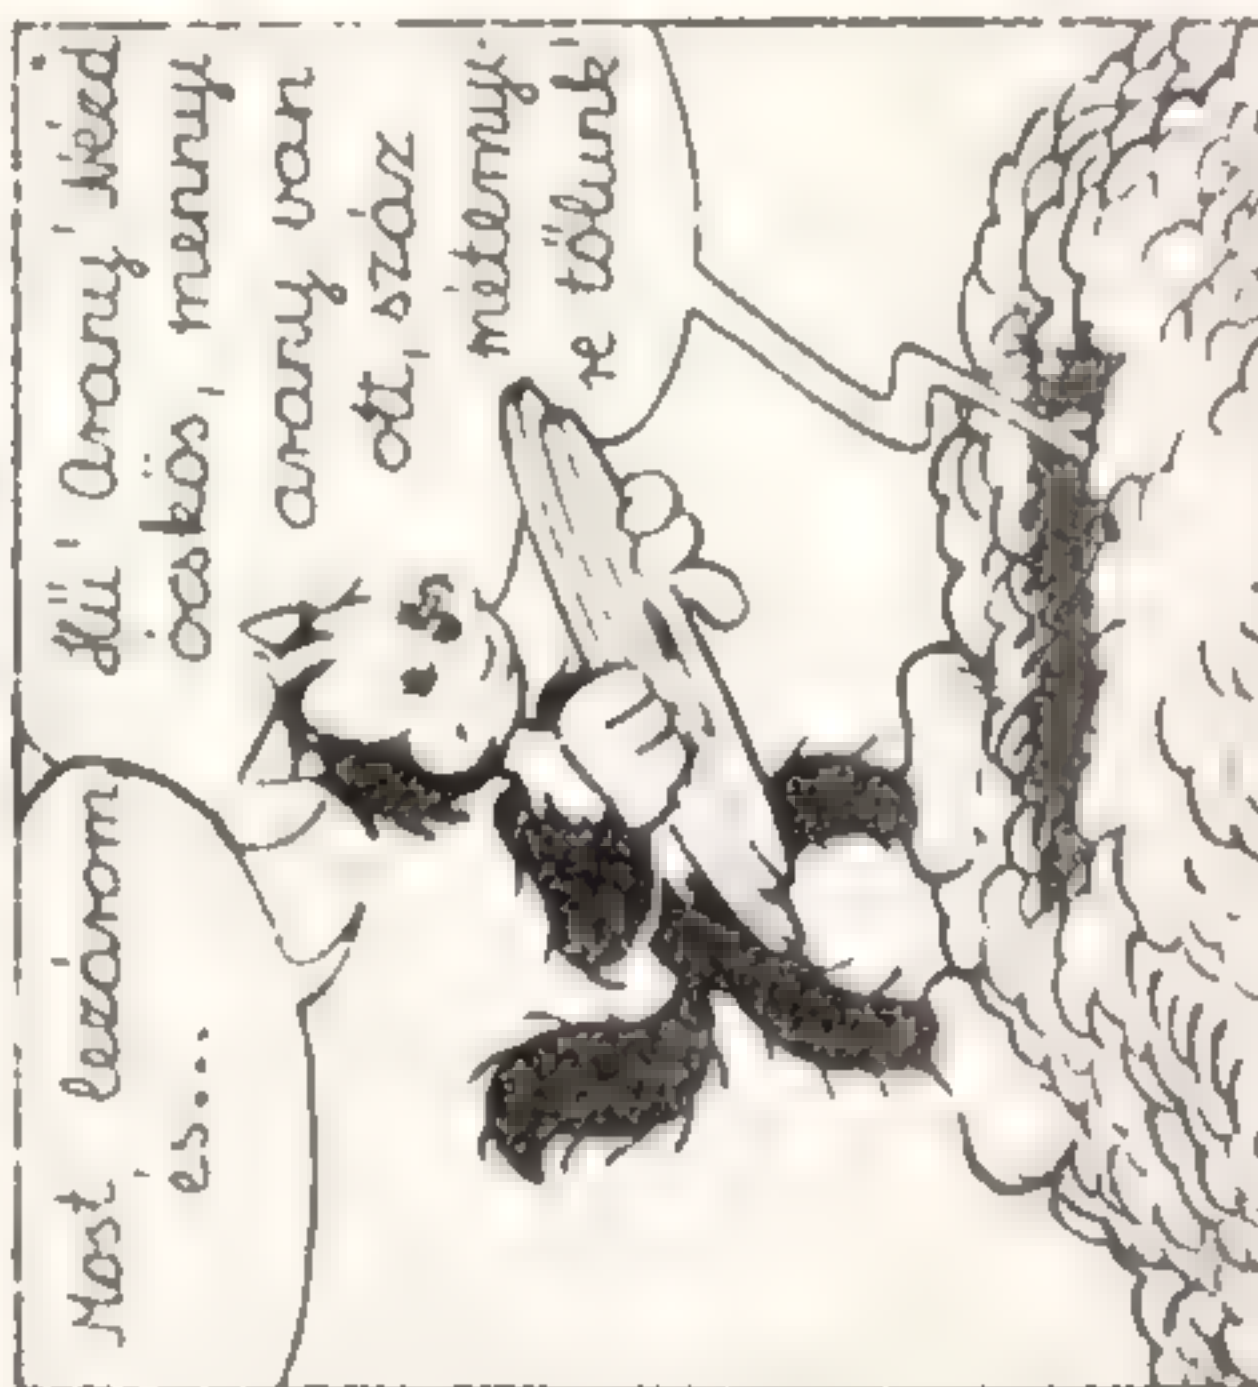 Most lezárom
és...
Hü! Arany! Nézd
öcskös, mennyi
arany van
ott, száz
méternyi-
re tőlünk